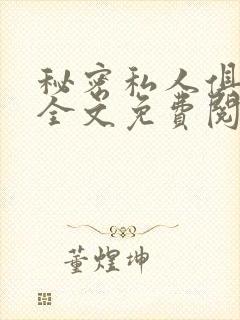 秘密私人俱
全文免费阅
董煌坤